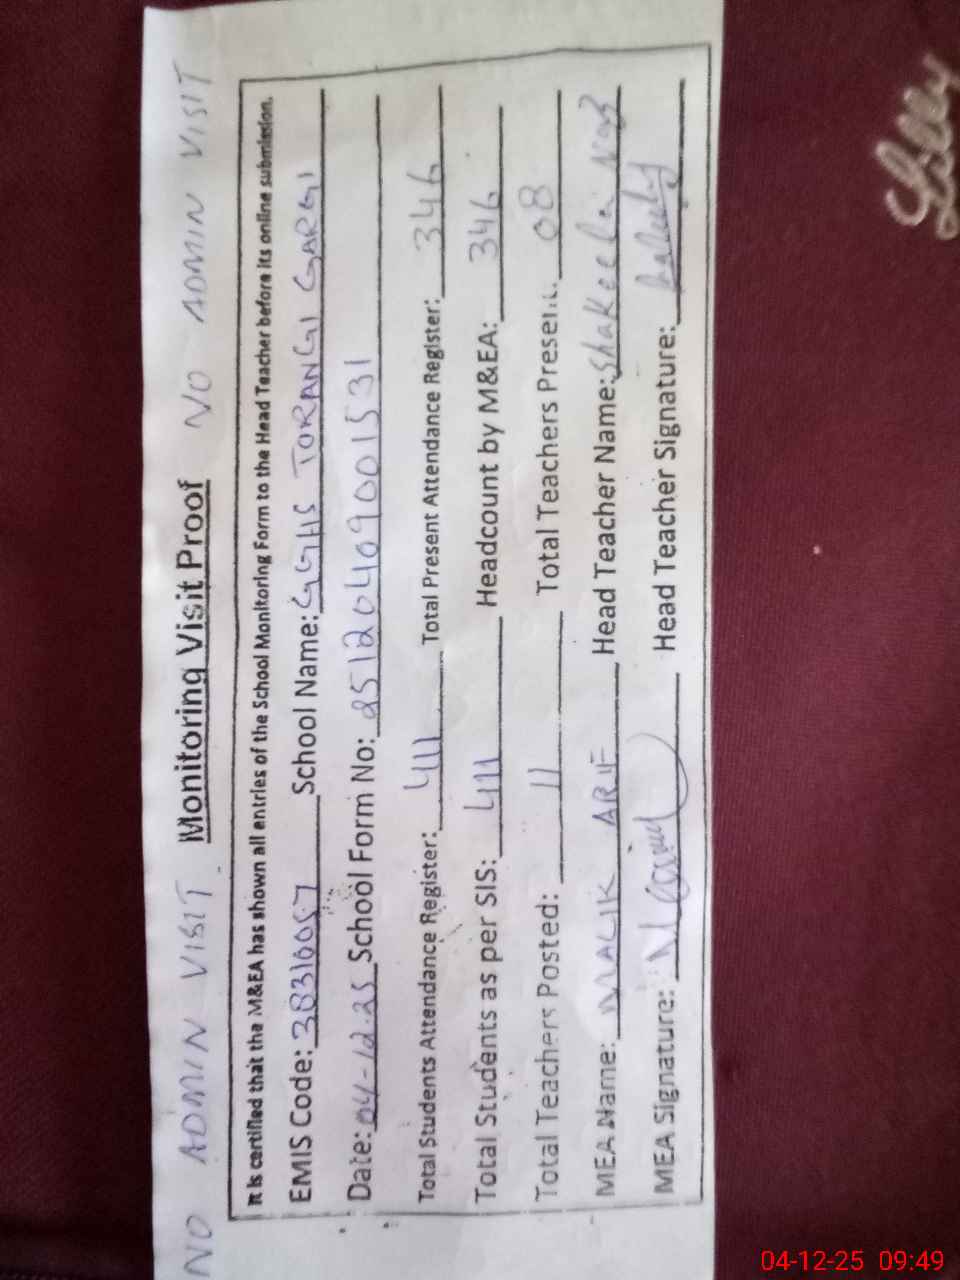 NO ADMIN VISIT Monitoring Visit Proof NO ADMIN VISIT
It is certified that the M&EA has shown all entries of the School Monitoring Form to the Head Teacher before its online submission.
EMIS Code: 38310057 School Name: GGHS TORANGI GARGI
Date: 04-12-25 School Form No: 25120409001531
Total Students Attendance Register: 411 Total Present Attendance Register: 346
Total Students as per SIS: 411 Headcount by M&EA: 346
Total Teachers Posted: 11 Total Teachers Present: 08
MEA Name: MALIK ARIF Head Teacher Name: Shakeela Naz
MEA Signature: Head Teacher Signature:
04-12-25 09:49